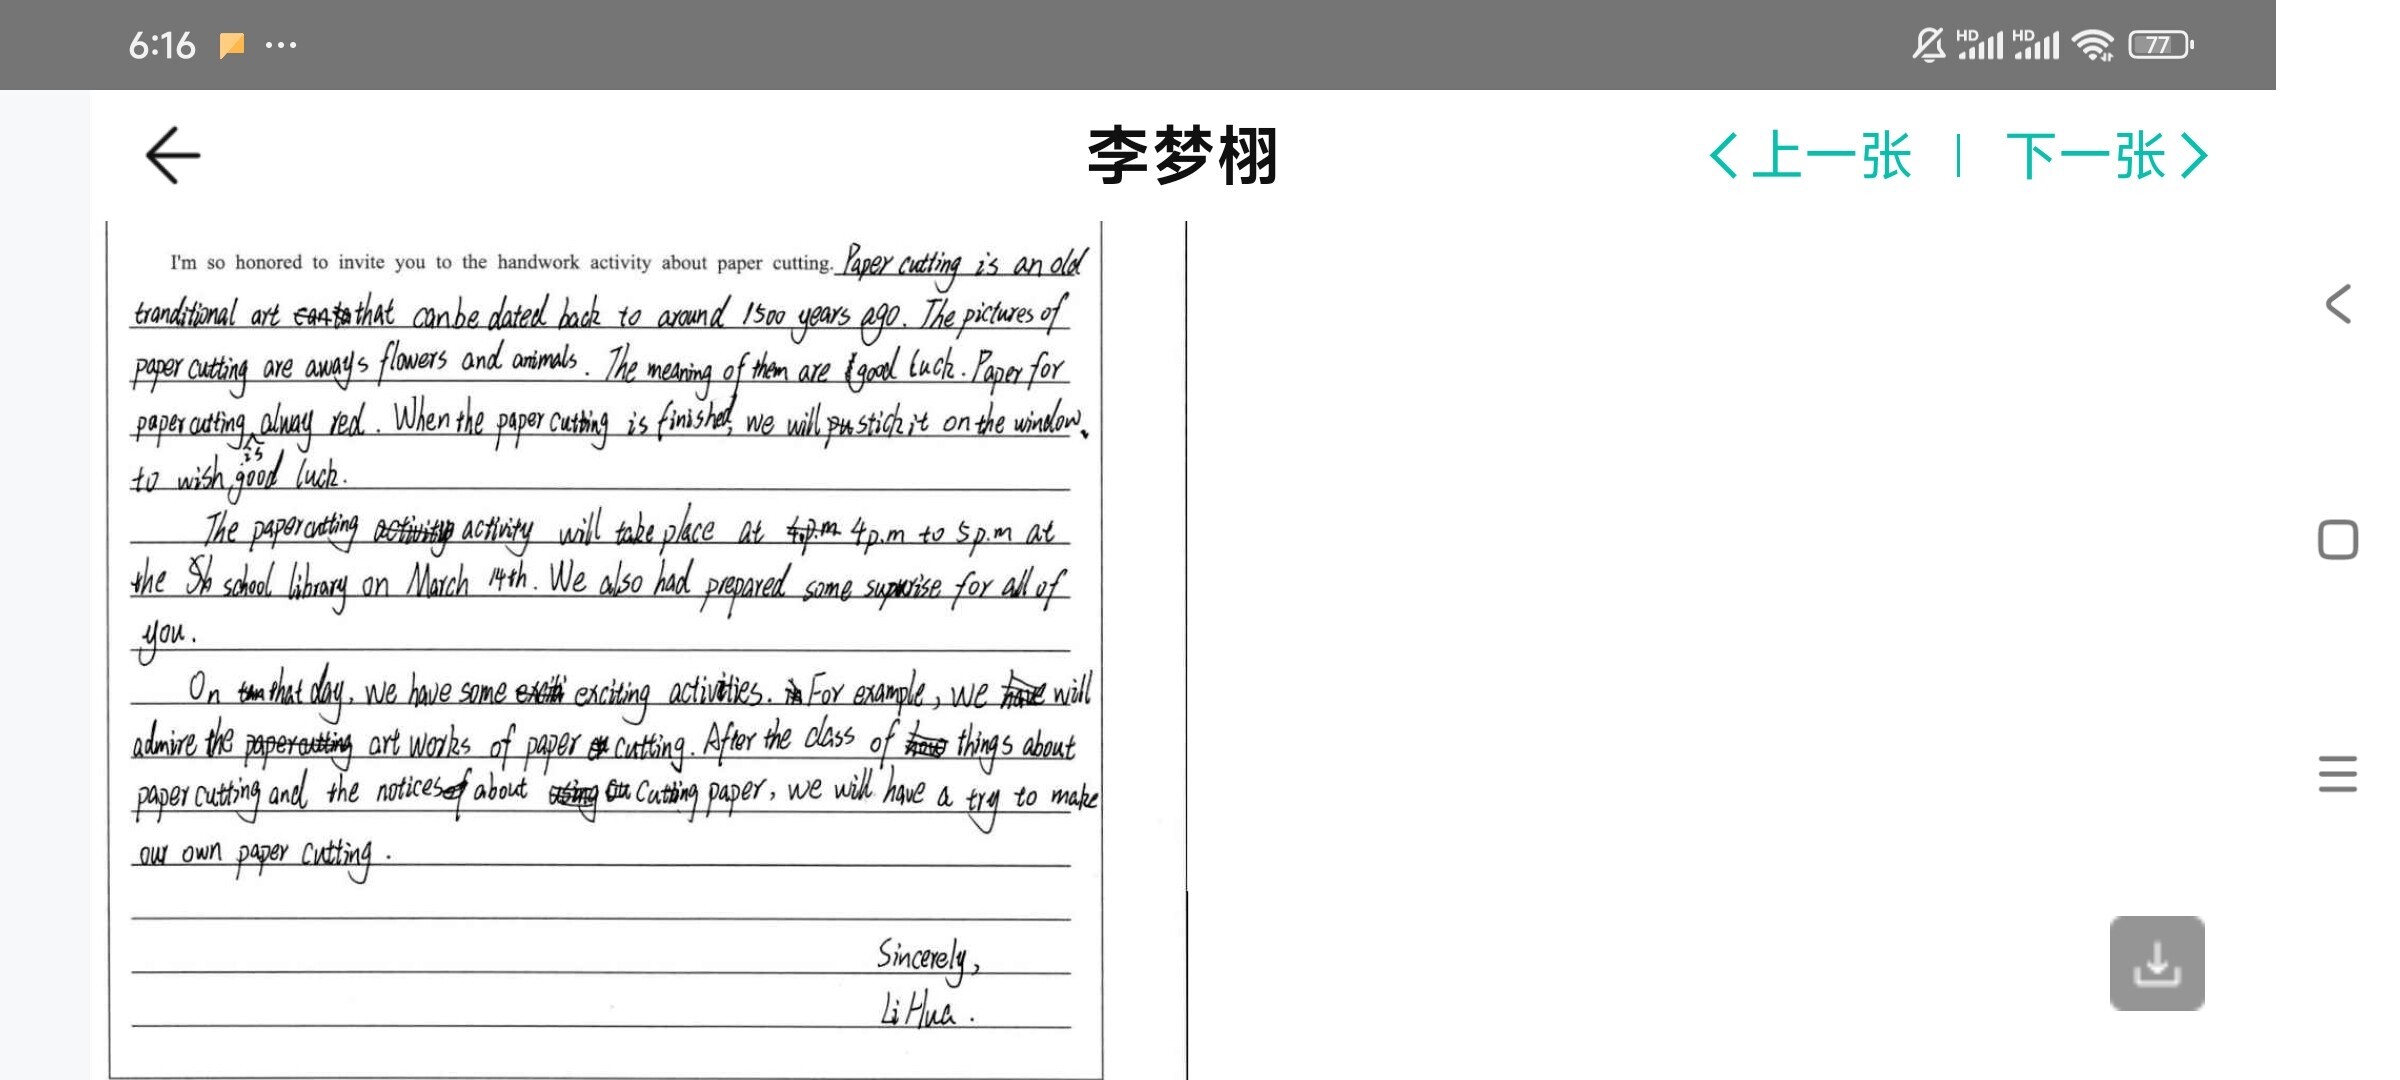 6:16 ... HD HD 77
李梦栩
上一张 | 下一张
I'm so honored to invite you to the handwork activity about paper cutting. Paper cutting is an old
tranditional art that can be dated back to around 1500 years ago. The pictures of
paper cutting are aways flowers and animals. The meaning of them are good luck. Paper for
paper cutting is alway red. When the paper cutting is finished, we will stick it on the window
to wish good luck.
The paper cutting activity will take place at 4p.m to 5p.m at
the school library on March 14th. We also had prepared some suprise for all of
you.
On that day, we have some exciting activities. For example, we will
admire the art works of paper cutting. After the class of things about
paper cutting and the notices about cutting paper, we will have a try to make
our own paper cutting.
Sincerely,
Li Hua.